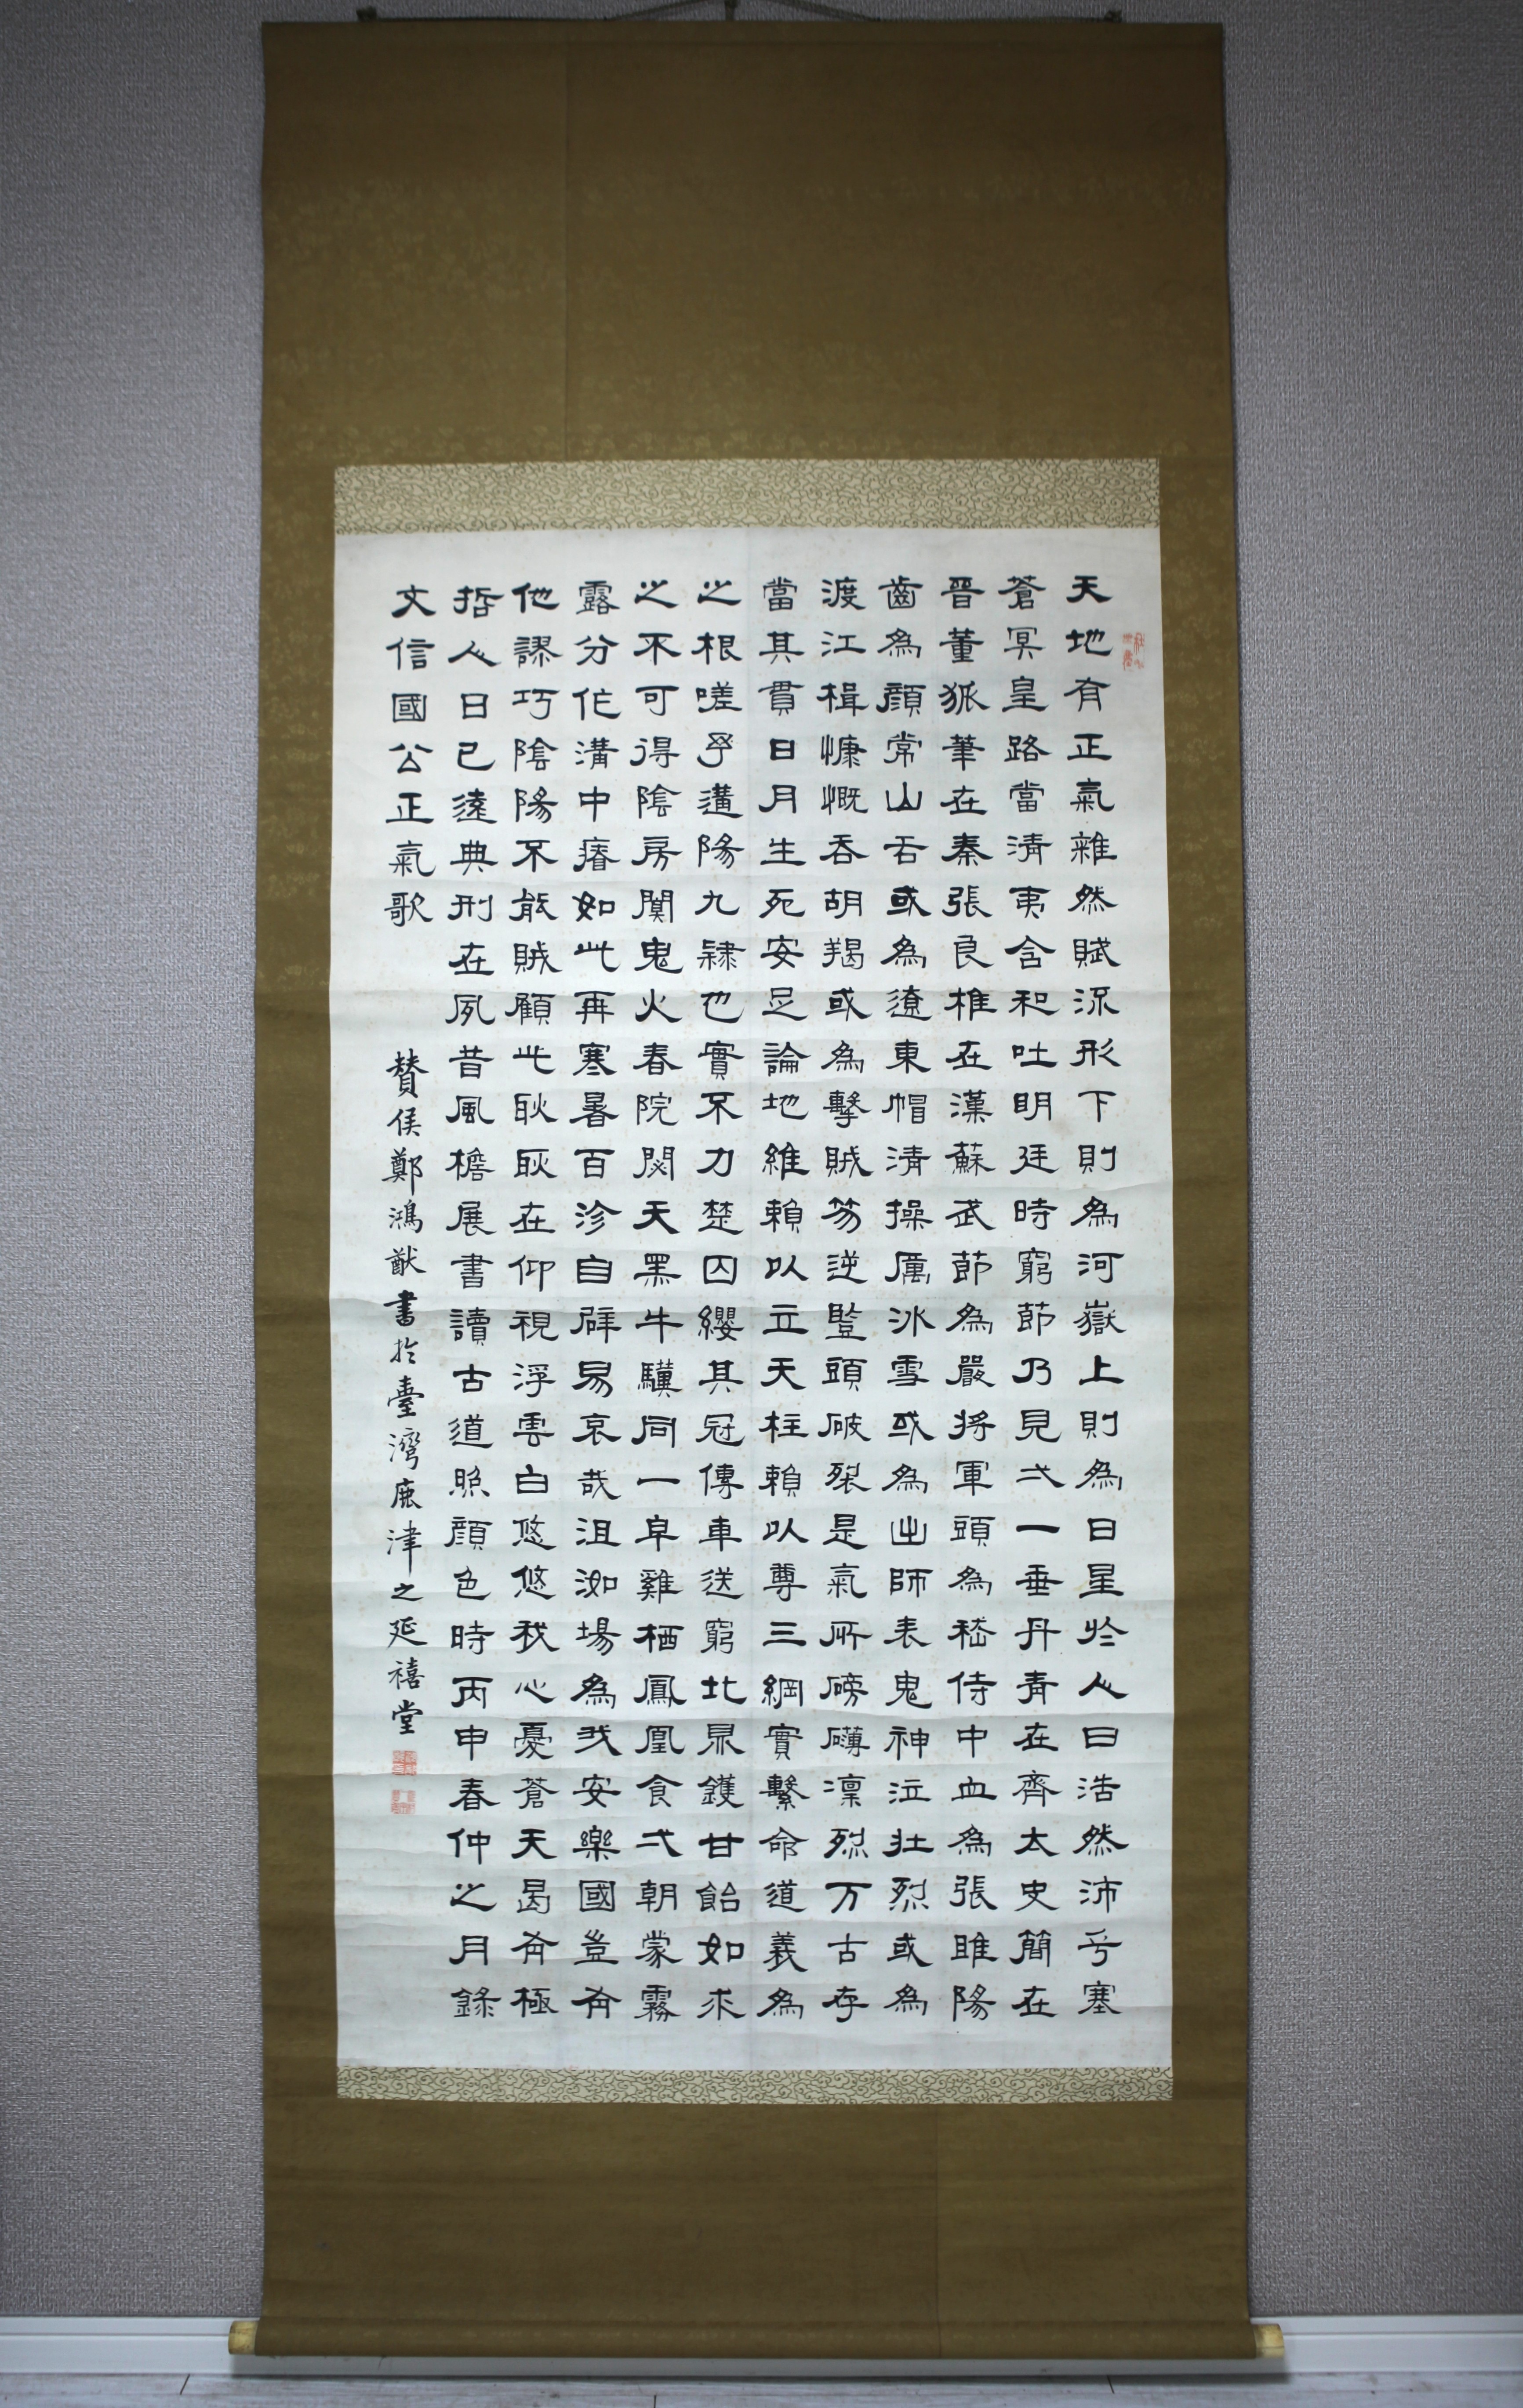 天地有正氣雜然賦流形下則為河嶽上則為日星於人曰浩然沛乎塞
蒼冥皇路當清夷含和吐明廷時窮節乃見弌一垂丹青在齊太史簡在
晉董狐筆在秦張良椎在漢蘇武節為嚴將軍頭為嵇侍中血為張睢陽
齒為顏常山舌或為遼東帽清操厲冰雪或為出師表鬼神泣壯烈或為
渡江楫慷慨吞胡羯或為擊賊笏逆豎頭破裂是氣所磅礴凜烈万古存
當其貫日月生死安足論地維賴以立天柱賴以尊三綱實繫命道義為
之根嗟乎遘陽九隸也實不力楚囚纓其冠傳車送窮北鼎鑊甘飴如求
之不可得陰房闃鬼火春院閟天黑牛驥同一皁雞栖鳳凰食弌朝蒙霧
露分作溝中瘠如此再寒暑百沴自辟易哀哉沮洳場為我安樂國豈有
他謬巧陰陽不能賊顧此耿耿在仰視浮雲白悠悠我心憂蒼天曷有極
哲人日已遠典刑在夙昔風檐展書讀古道照顏色時丙申春仲之月錄
文信國公正氣歌 贊侯鄭鴻猷書於臺灣鹿津之延禧堂